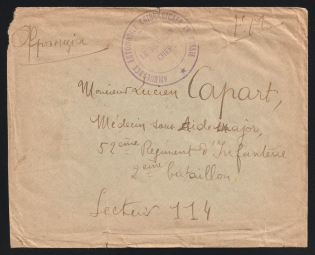 Франція
Monsieur Lucien Capart,
Médecin sous Aide major,
52ème Regiment d'Infanterie
2ème bataillon.
Secteur 114